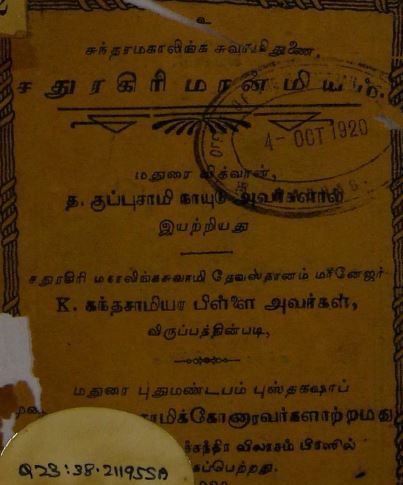 உ
சுந்தரமகாலிங்க சுவாமி துணை.
சதுரகிரி மான்மியம்.
4- OCT 1920
மதுரை வித்வான்,
த. குப்புசாமி நாயுடு அவர்களால்
இயற்றியது
சதுரகிரி மகாலிங்கசுவாமி தேவஸ்தானம் மானேஜர்
K. கந்தசாமியா பிள்ளை அவர்கள்,
விருப்பத்தின்படி,
மதுரை புதுமண்டபம் புஸ்தகஷாப்
மிக்கோனாரவர்களாற்றமது
ச்சந்திரா விலாசம் பிரஸில்
கப்பெற்றது.
Q23:38·2119SSA